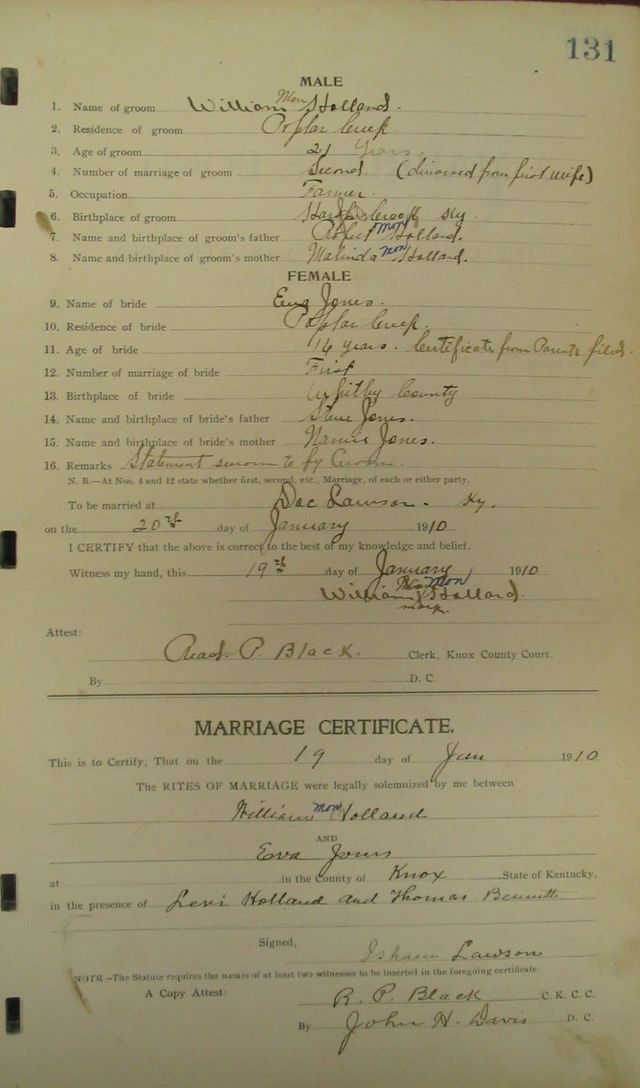 131
MALE
1. Name of groom William Mon Holland.
2. Residence of groom Poplar Creek
3. Age of groom 21 Years.
4. Number of marriage of groom Second (divorced from first wife)
5. Occupation Farmer.
6. Birthplace of groom Ky
7. Name and birthplace of groom's father Robert Mon Holland.
8. Name and birthplace of groom's mother Malinda Mon Holland.
FEMALE
9. Name of bride Eva Jones.
10. Residence of bride Poplar Creek.
11. Age of bride years. Certificate from Parents filed.
12. Number of marriage of bride First
13. Birthplace of bride Whitley County
14. Name and birthplace of bride's father Steve Jones.
15. Name and birthplace of bride's mother Nannie Jones.
16. Remarks Statement sworn to by Groom.
N. B.—At Nos. 4 and 12 state whether first, second, etc., Marriage, of each or either party.
To be married at Doc Lawson - Ky.
on the 20th day of January 1910
I CERTIFY that the above is correct to the best of my knowledge and belief.
Witness my hand, this 19th day of January 1910
William X Mon Holland.
mark.
Attest:
Read P. Black. Clerk, Knox County Court.
By D. C.
MARRIAGE CERTIFICATE.
This is to Certify, That on the 19 day of Jan 1910
The RITES OF MARRIAGE were legally solemnized by me between
William Mon Holland
AND
Eva Jones
at in the County of Knox State of Kentucky,
in the presence of Levi Holland and Thomas Bennett
Signed, Isham Lawson
NOTE—The Statute requires the names of at least two witnesses to be inserted in the foregoing certificate.
A Copy Attest: R. P. Black C. K. C. C.
By John H. Davis D. C.